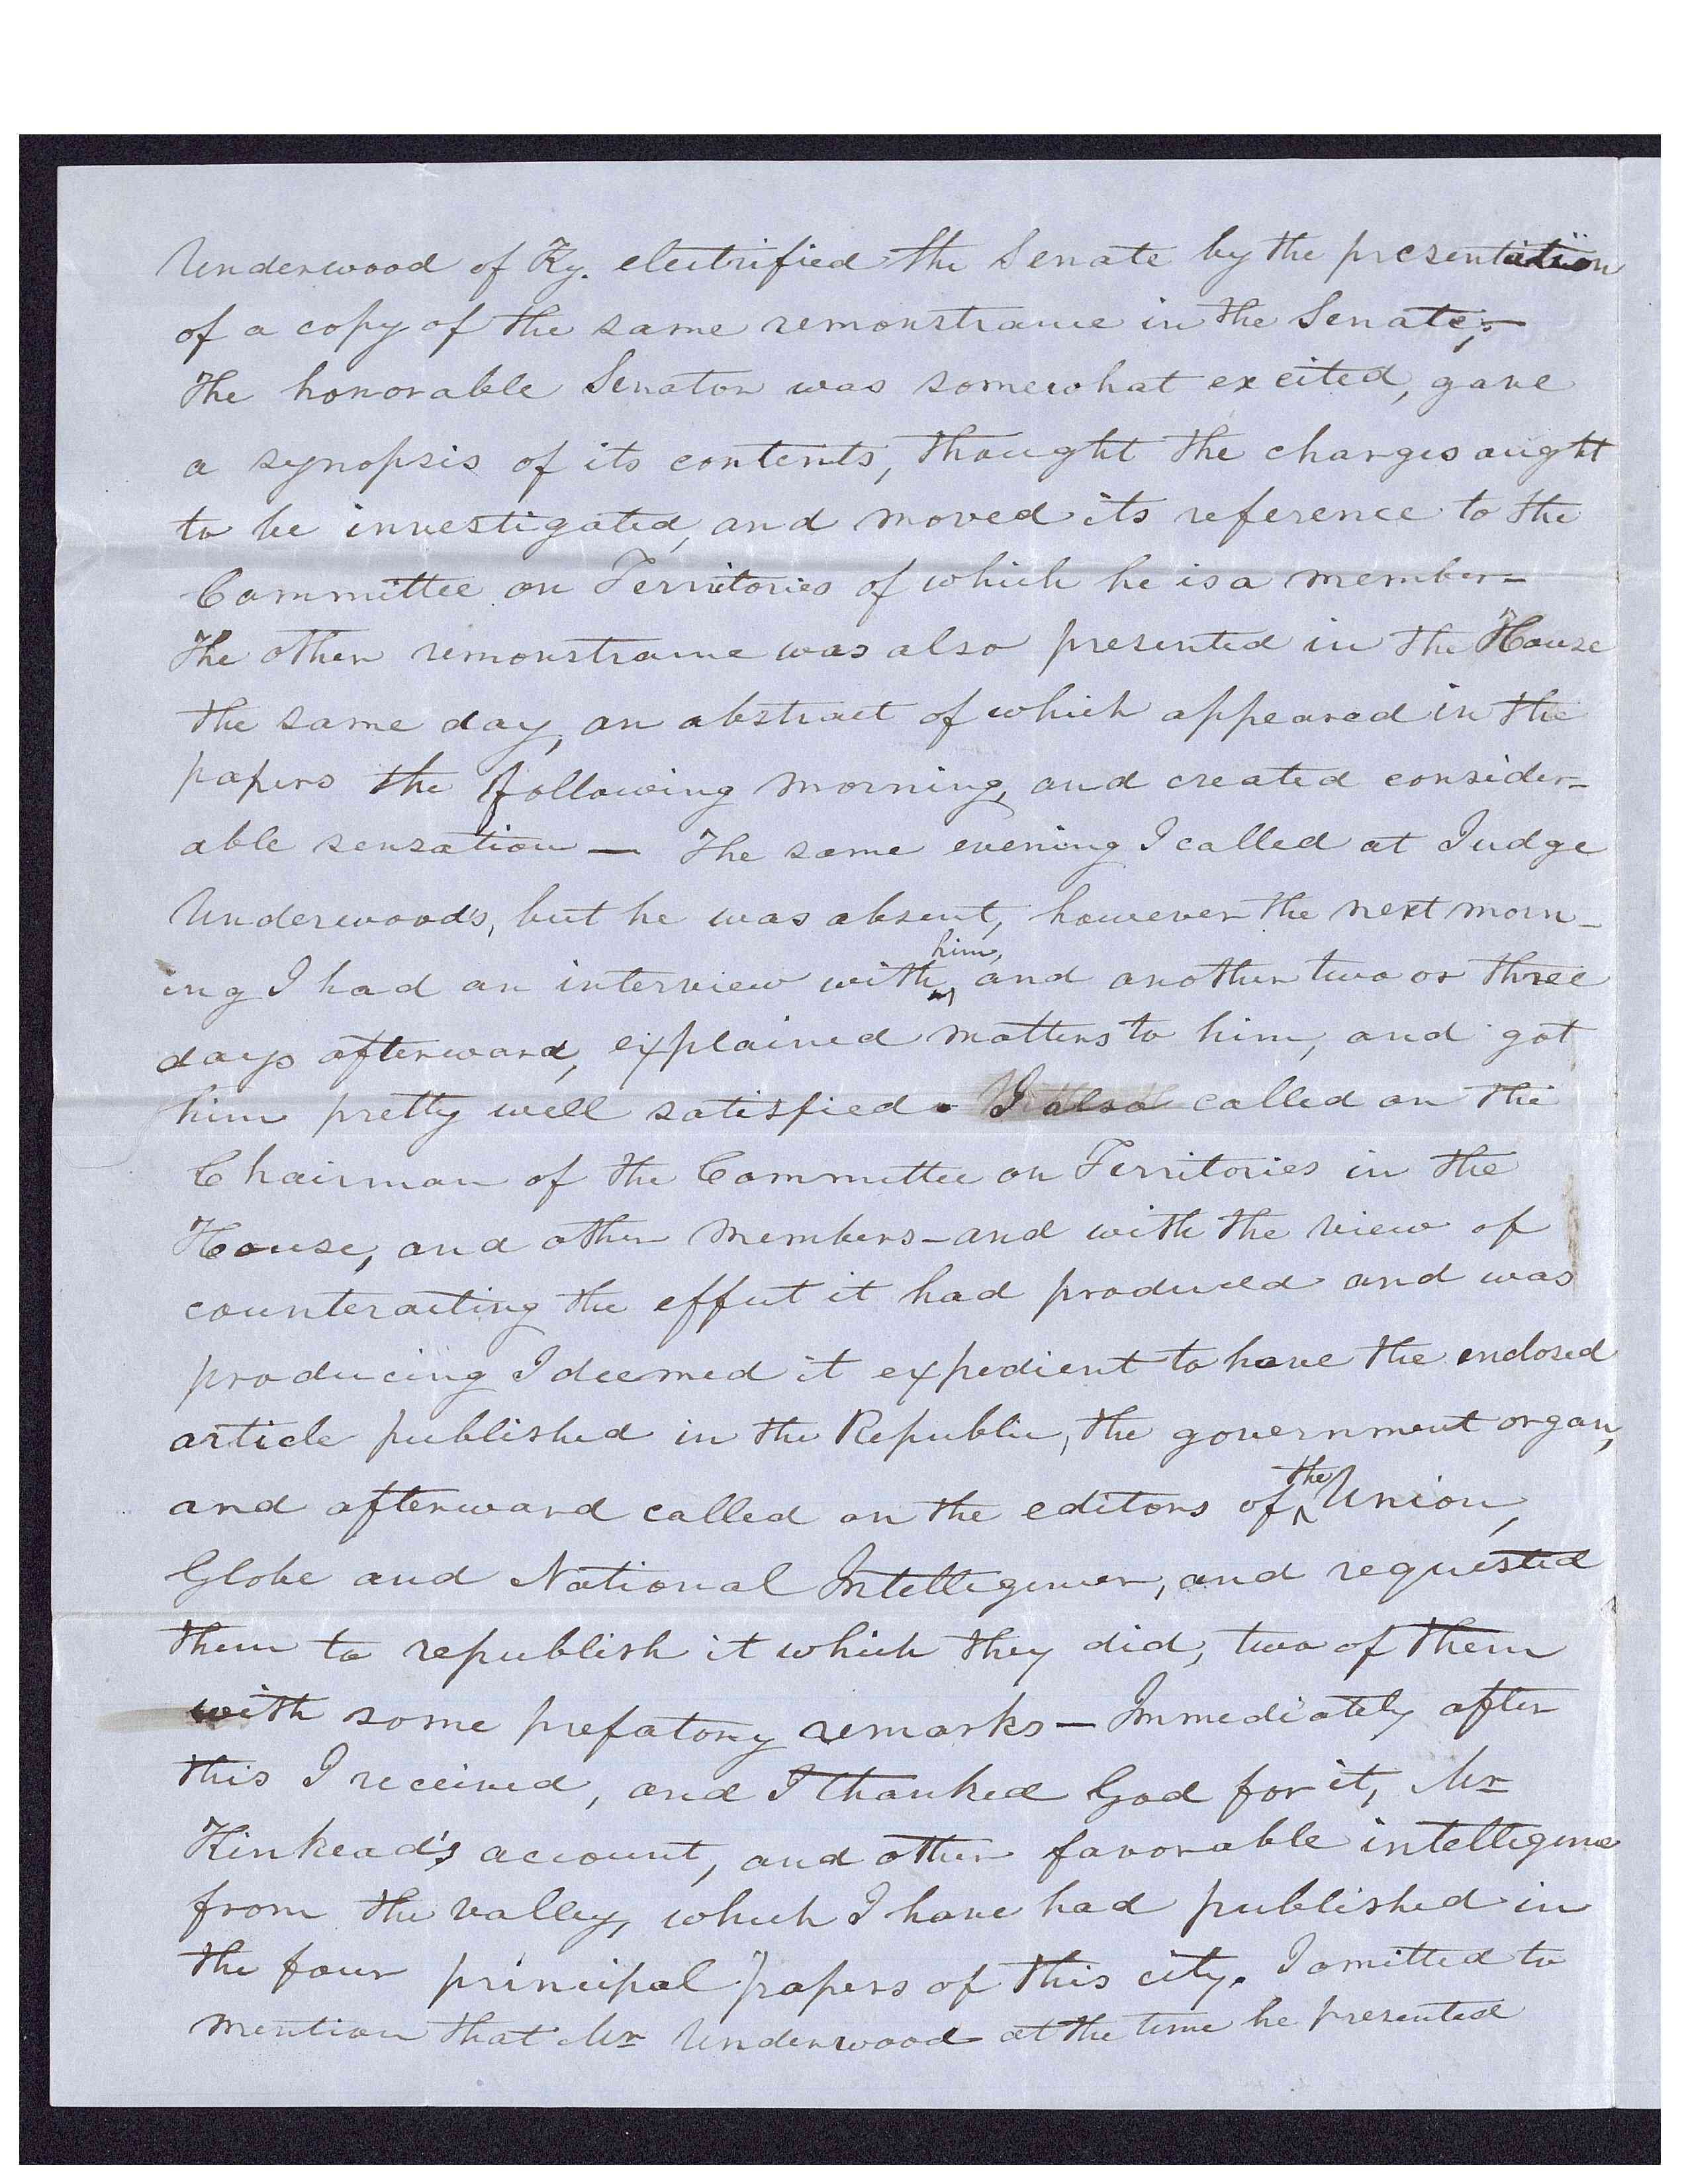 Underwood of Ky. electrified the Senate by the presentation
of a copy of the same remonstrance in the Senate;—
The honorable Senator was somewhat excited, gave
a synopsis of its contents, thought the charges aught
to be investigated, and moved its reference to the
Committee on Territories of which he is a member—
The other remonstrance was also presented in the House
the same day, an abstract of which appeared in the
papers the following morning, and created consider-
able sensation — The same evening I called at Judge
Underwood's, but he was absent, however the next morn-
ing I had an interview with him, and another two or three
days afterward, explained matters to him, and got
him pretty well satisfied. I also called on the
Chairman of the Committee on Territories in the
House, and other members—and with the view of
counteracting the effect it had produced and was
producing I deemed it expedient to have the enclosed
article published in the Republic, the government organ,
and afterward called on the editors of the Union,
Globe and National Intelligencer, and requested
them to republish it which they did, two of them
with some prefatory remarks — Immediately after
this I received, and I thanked God for it, Mr
Kinkead's account, and other favorable intelligence
from the valley, which I have had published in
the four principal papers of this city. I omitted to
mention that Mr Underwood at the time he presented